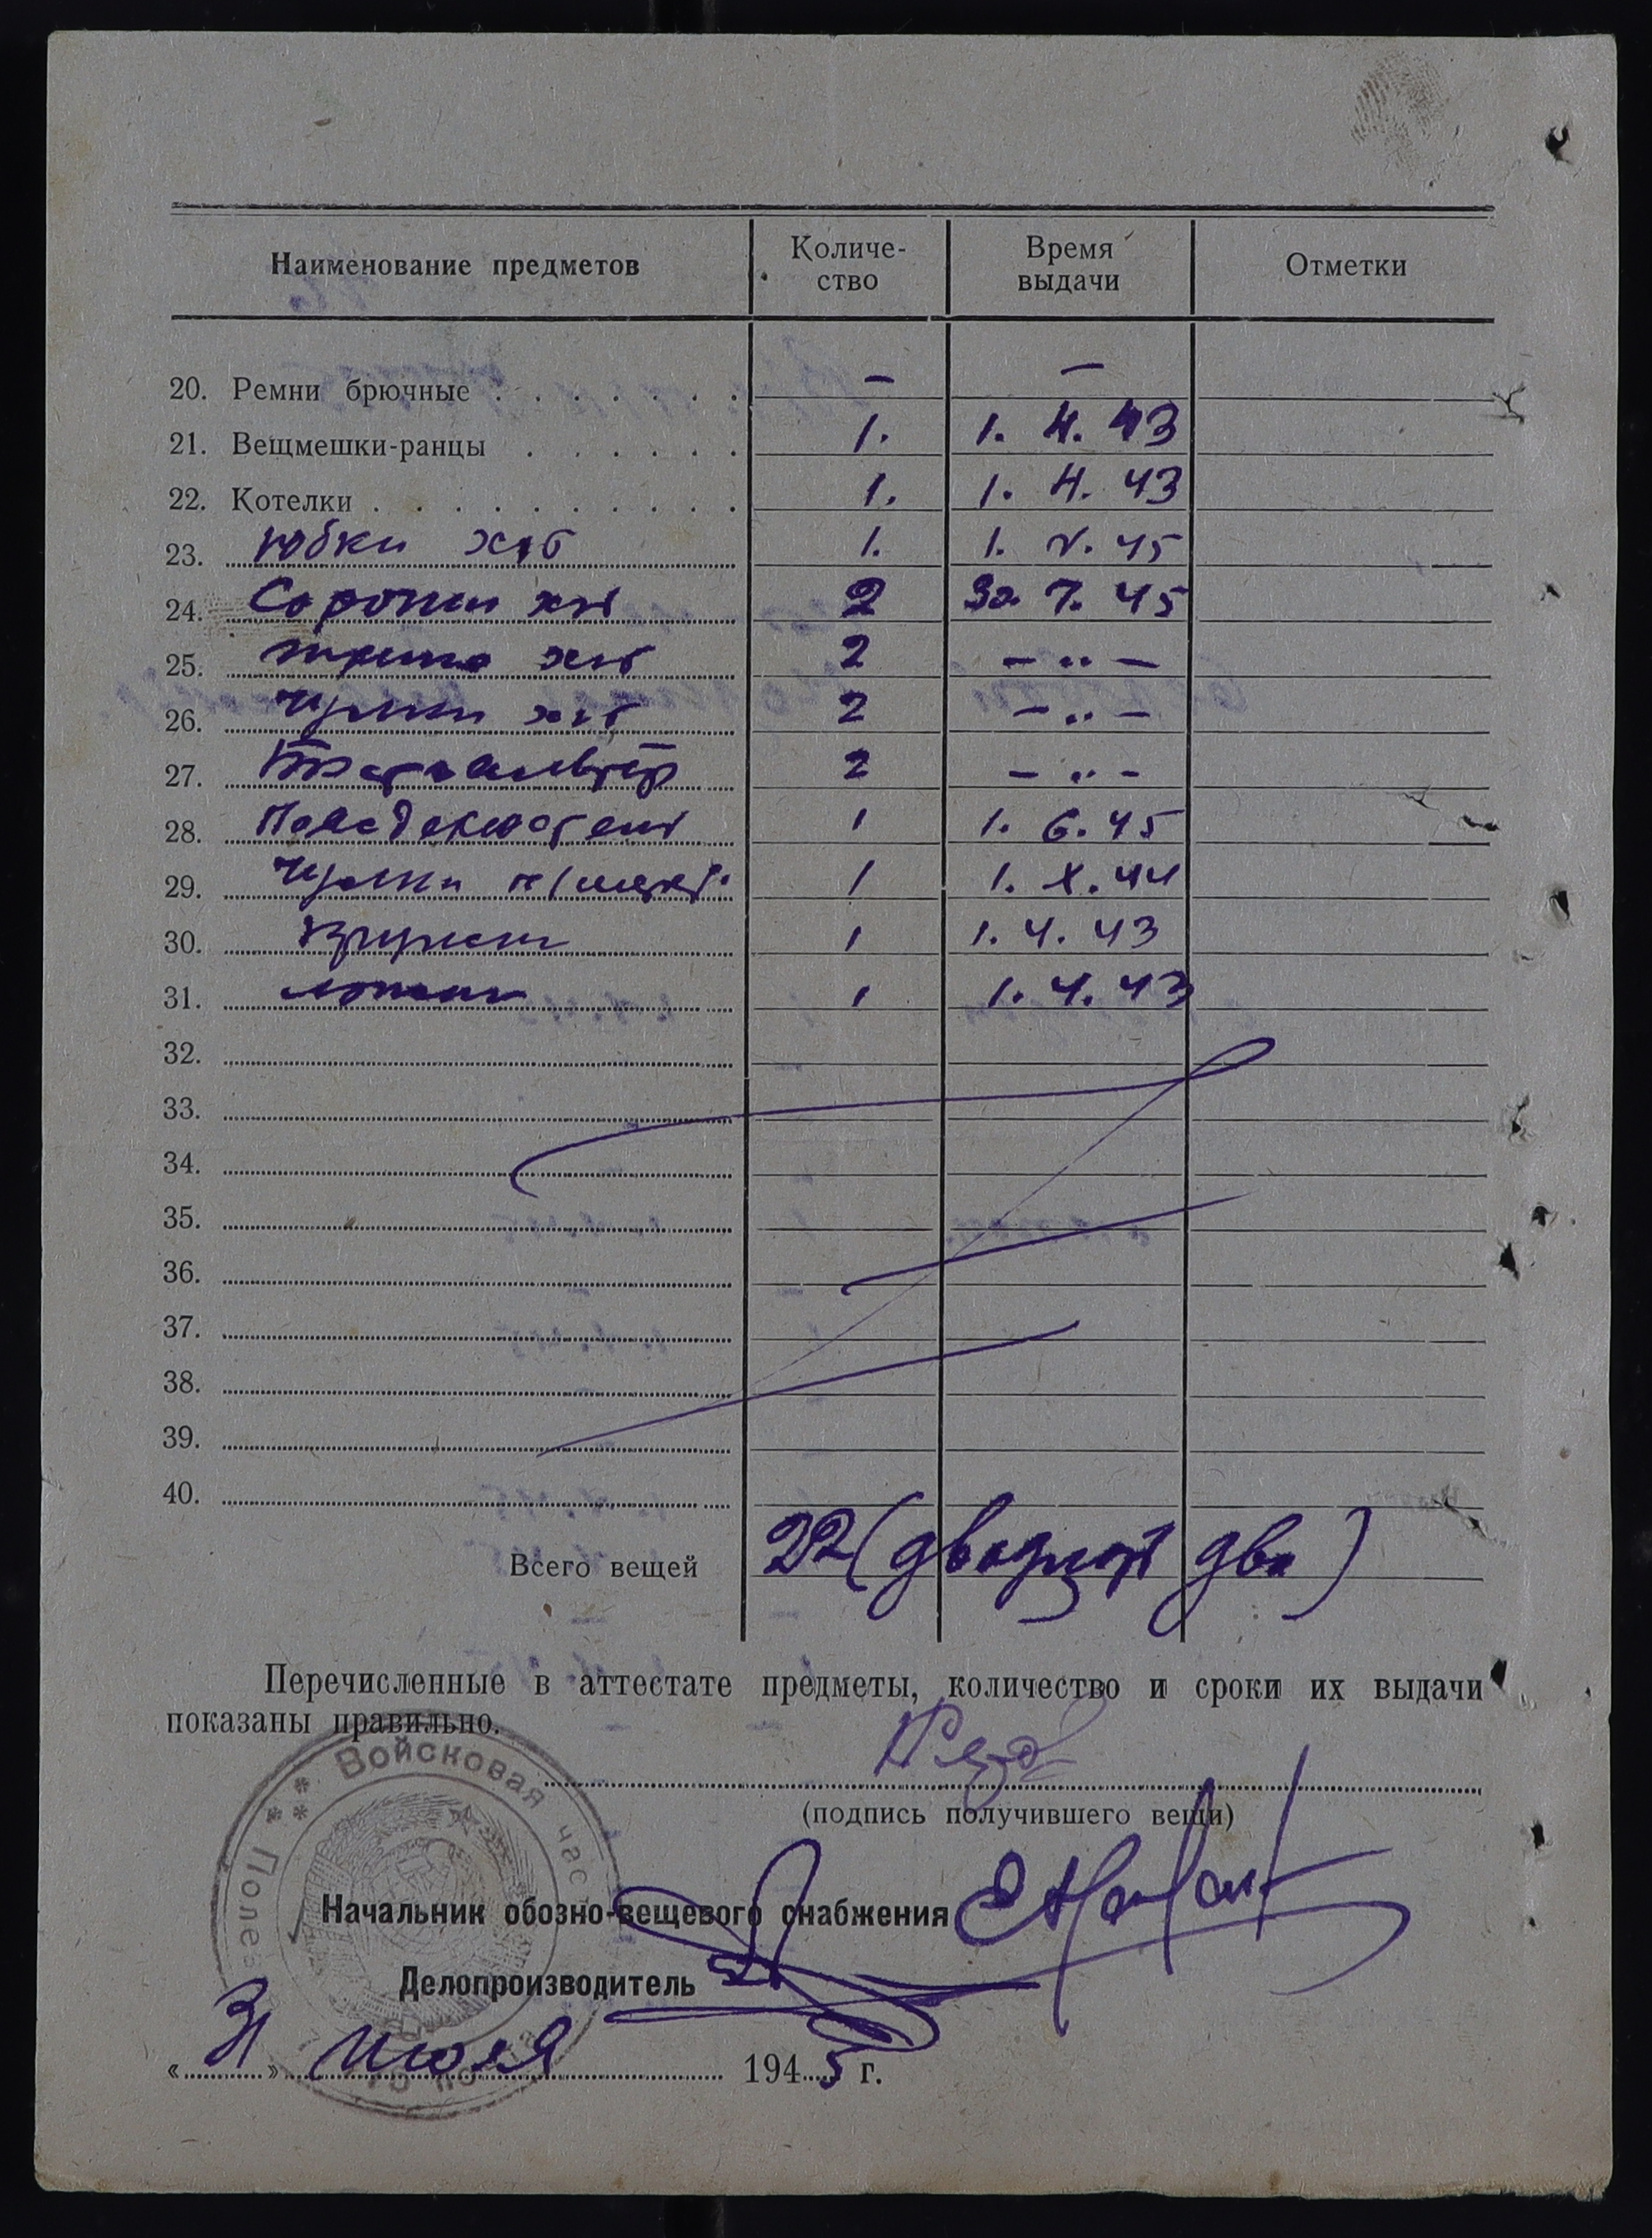 Наименование предметов Количе- Время Отметки
ство выдачи
20. Ремни брючные . . . . . . . — —
21. Вещмешки-ранцы . . . . . . 1. 1. 4. 43
22. Котелки . . . . . . . . . . . 1. 1. 4. 43
23. юбки х/б 1. 1. V. 45
24. Сорочки х/б 2 30. 7. 45
25. х/б 2 — " —
26. Чулки х/б 2 — " —
27. 2 — " —
28. 1 1. 6. 45
29. Чулки п/шерст. 1 1. X. 44
30. Кружки 1 1. 4. 43
31. ложки 1 1. 4. 43
32.
33.
34.
35.
36.
37.
38.
39.
40.
Всего вещей 22 (двадцать два)
Перечисленные в аттестате предметы, количество и сроки их выдачи
показаны правильно.
(подпись получившего вещи)
Войсковая час
Полев
Начальник обозно-вещевого снабжения
Делопроизводитель
« 31 » июля 1945 г.